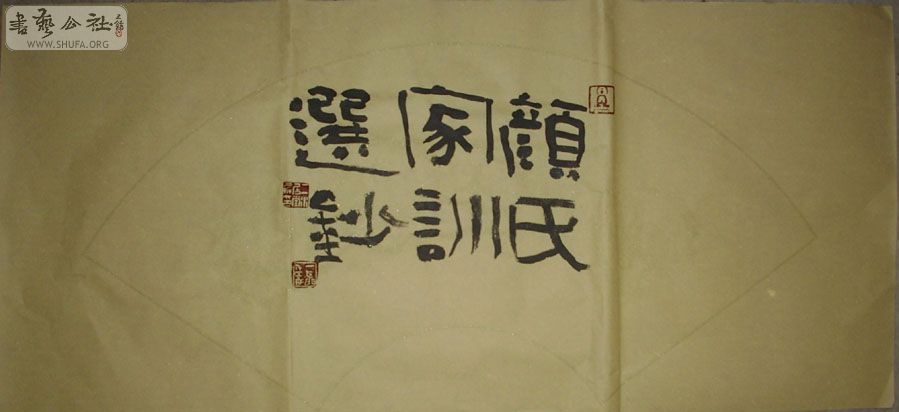 顏氏
家訓
選鈔
書藝公社
WWW.SHUFA.ORG